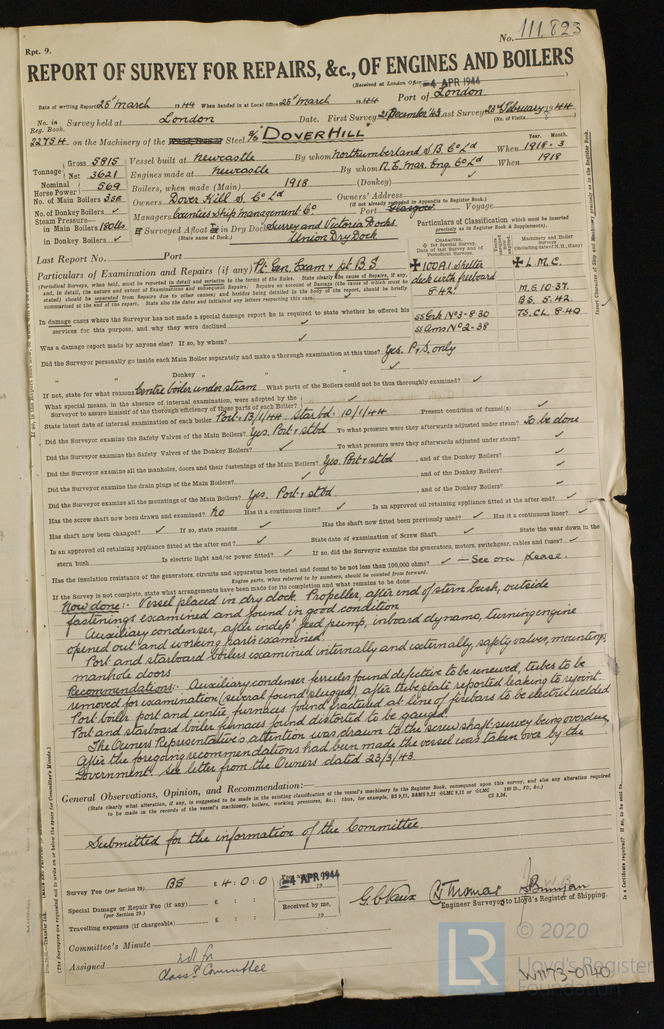 Rpt. 9.
No. 111,823
REPORT OF SURVEY FOR REPAIRS, &c., OF ENGINES AND BOILERS
(Received at London Office -4 APR 1944)
Date of writing Report 25' March 1944 When handed in at Local Office 25' March 1944 Port of London
No. in Reg. Book. Survey held at London Date. First Survey 21 December '43 Last Survey 23rd February 1944
(No. of Visits)
22754 on the Machinery of the Steel S/S "DOVER HILL"
Tonnage Gross 5815 Vessel built at Newcastle By whom Northumberland S.B. Co Ld When 1918-3
Net 3621 Engines made at Newcastle By whom N.E. Mar. Eng. Co Ld When 1918
Nominal Horse Power 569 Boilers, when made (Main) 1918 (Donkey) ✓
No. of Main Boilers 3SB Owners Dover Hill S. Co Ld Owners' Address
(if not already recorded in Appendix to Register Book.)
No. of Donkey Boilers ✓ Managers Counties Ship Management Co Port Glasgow Voyage
Steam Pressure in Main Boilers 180lbs Surveyed Afloat or in Dry Dock Surrey and Victoria Docks
in Donkey Boilers ✓ (State name of Dock.) Union Dry Dock
Last Report No. Port
Particulars of Classification which must be inserted precisely as in Register Book & Supplements).
Particulars of Examination and Repairs (if any) Pt. Gen. Exam & pt B.S.
✠ 100A1 Shelter deck with freeboard 8.42
✠ L.M.C.
M.S. 10.37.
B.S. 5.42.
T.S.CL. 8.40
SS Crk No3-8.30
SS Ams No2-38
In damage cases where the Surveyor has not made a special damage report he is required to state whether he offered his services for this purpose, and why they were declined ✓
Was a damage report made by anyone else? If so, by whom? ✓
Did the Surveyor personally go inside each Main Boiler separately and make a thorough examination at this time? Yes. P & S. only
" " Donkey " " " ✓
If not, state for what reasons Centre boiler under steam What parts of the Boilers could not be thoroughly examined? ✓
What special means, in the absence of internal examination, were adopted by the Surveyor to assure himself of the thorough efficiency of those parts of each Boiler? ✓
State latest date of internal examination of each boiler Port. 13/1/44 Starbd. 10/1/44 Present condition of funnel(s) ✓
Did the Surveyor examine the Safety Valves of the Main Boilers? Yes. Port & stbd To what pressure were they afterwards adjusted under steam? To be done
Did the Surveyor examine the Safety Valves of the Donkey Boilers? ✓ To what pressure were they afterwards adjusted under steam? ✓
Did the Surveyor examine all the manholes, doors and their fastenings of the Main Boilers? Yes. Port & stbd , and of the Donkey Boilers? ✓
Did the Surveyor examine the drain plugs of the Main Boilers? ✓ , and of the Donkey Boilers? ✓
Did the Surveyor examine all the mountings of the Main Boilers? Yes. Port & stbd , and of the Donkey Boilers? ✓
Has the screw shaft now been drawn and examined? No Has it a continuous liner? ✓ Is an approved oil retaining appliance fitted at the after end? ✓
Has shaft now been changed? ✓ If so, state reasons ✓ Has the shaft now fitted been previously used? ✓ Has it a continuous liner? ✓
Is an approved oil retaining appliance fitted at the after end? ✓ State date of examination of Screw Shaft ✓ State the wear down in the
stern bush ✓ Is electric light and/or power fitted? ✓ If so, did the Surveyor examine the generators, motors, switchgear, cables and fuses? ✓
Has the insulation resistance of the generators, circuits and apparatus been tested and found to be not less than 100,000 ohms? ✓ — See over please.
Engine parts, when referred to by numbers, should be counted from forward.
If the Survey is not complete, state what arrangements have been made for its completion and what remains to be done
Now done:- Vessel placed in dry dock. Propeller, after end of stern bush, outside
fastenings examined and found in good condition
Auxiliary condenser, after indep' feed pump, inboard dynamo, turning engine
opened out and working parts examined.
Port and starboard boilers examined internally and externally, safety valves, mountings,
manhole doors
Recommendations:- Auxiliary condenser ferrules found defective to be renewed, tubes to be
removed for examination (several found plugged), after tube plate reported leaking to rejoint.
Port boiler port and centre furnaces found fractured at line of firebars to be electric welded
Port and starboard boiler furnaces found distorted to be gauged.
The Owners Representative's attention was drawn to the screw shaft survey being overdue
After the foregoing recommendations had been made the vessel was taken over by the
Government. See letter from the Owners dated 23/3/43.
General Observations, Opinion, and Recommendation:—
(State clearly what alteration, if any, is suggested to be made in the existing classification of the vessel's machinery in the Register Book, consequent upon this survey, and also any alteration required
Submitted for the information of the Committee
Survey Fee (per Section 29) BS £ 4:0:0 -4 APR 1944
Special Damage or Repair Fee (if any) (per Section 29.) £ : : Received by me,
Travelling expenses (if chargeable) £ : :
Engineer Surveyor to Lloyd's Register of Shipping.
Committee's Minute
Assigned not for Class & Committee
© 2020
LR
Lloyd's Register
Foundation
W1173-0140